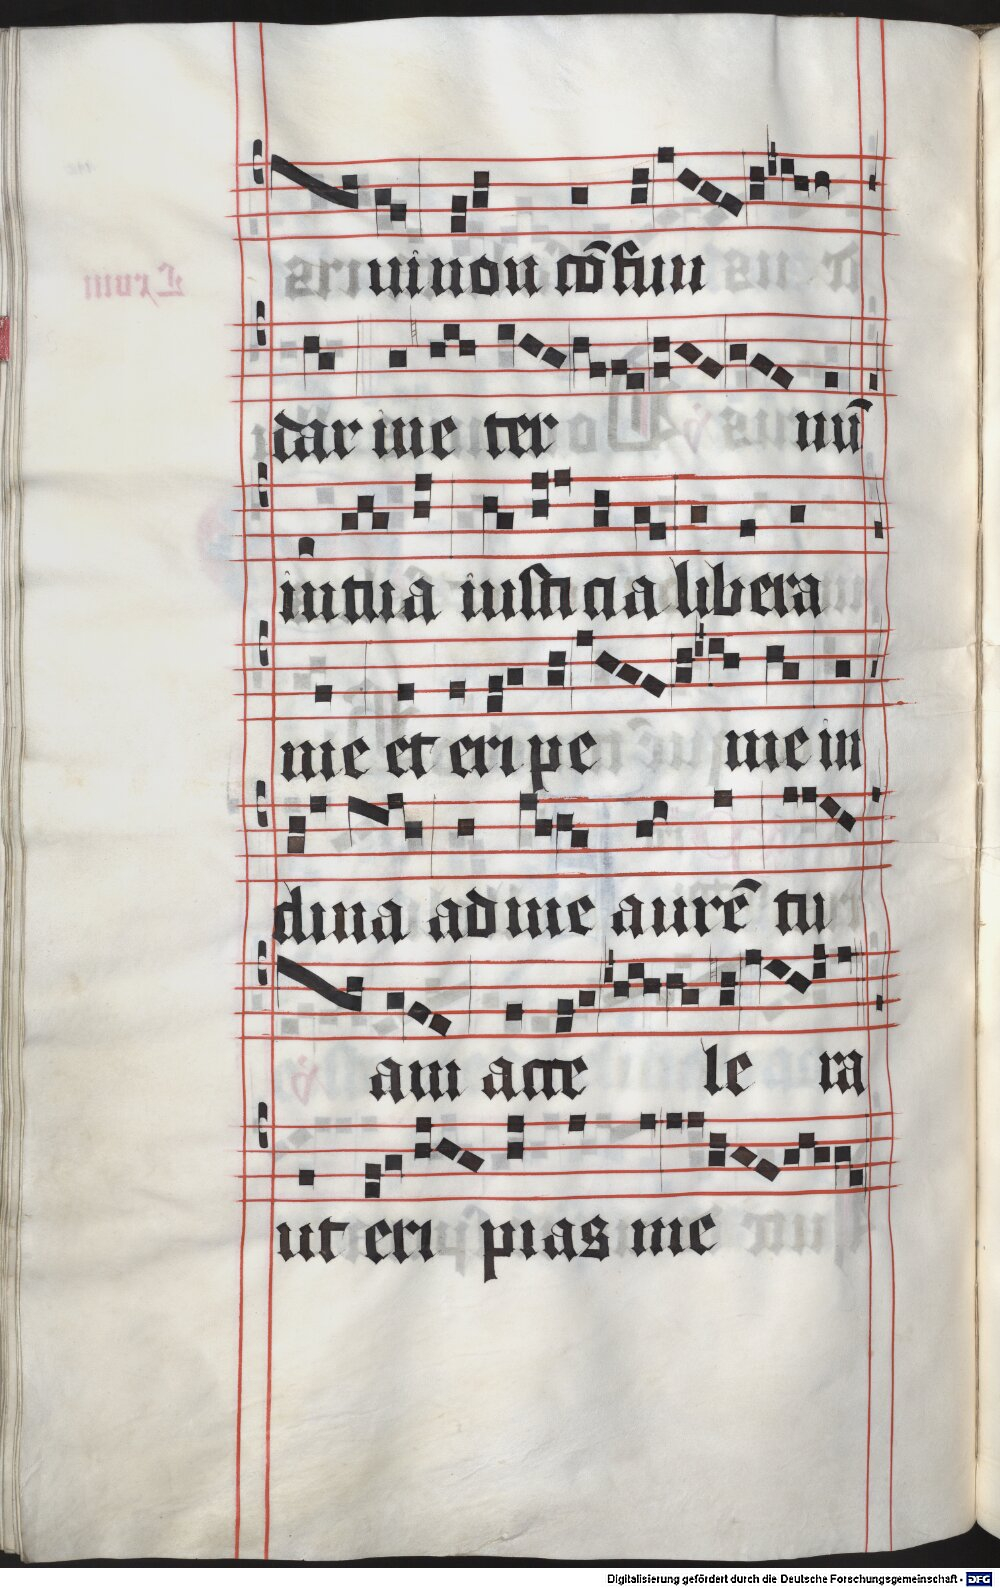 ui non cōfun
dar in e ter nū
in tua iusticia libera
me et eripe me in
clina ad me aurē tu
am acce le ra
ut eri pias me
Digitalisierung gefördert durch die Deutsche Forschungsgemeinschaft - DFG